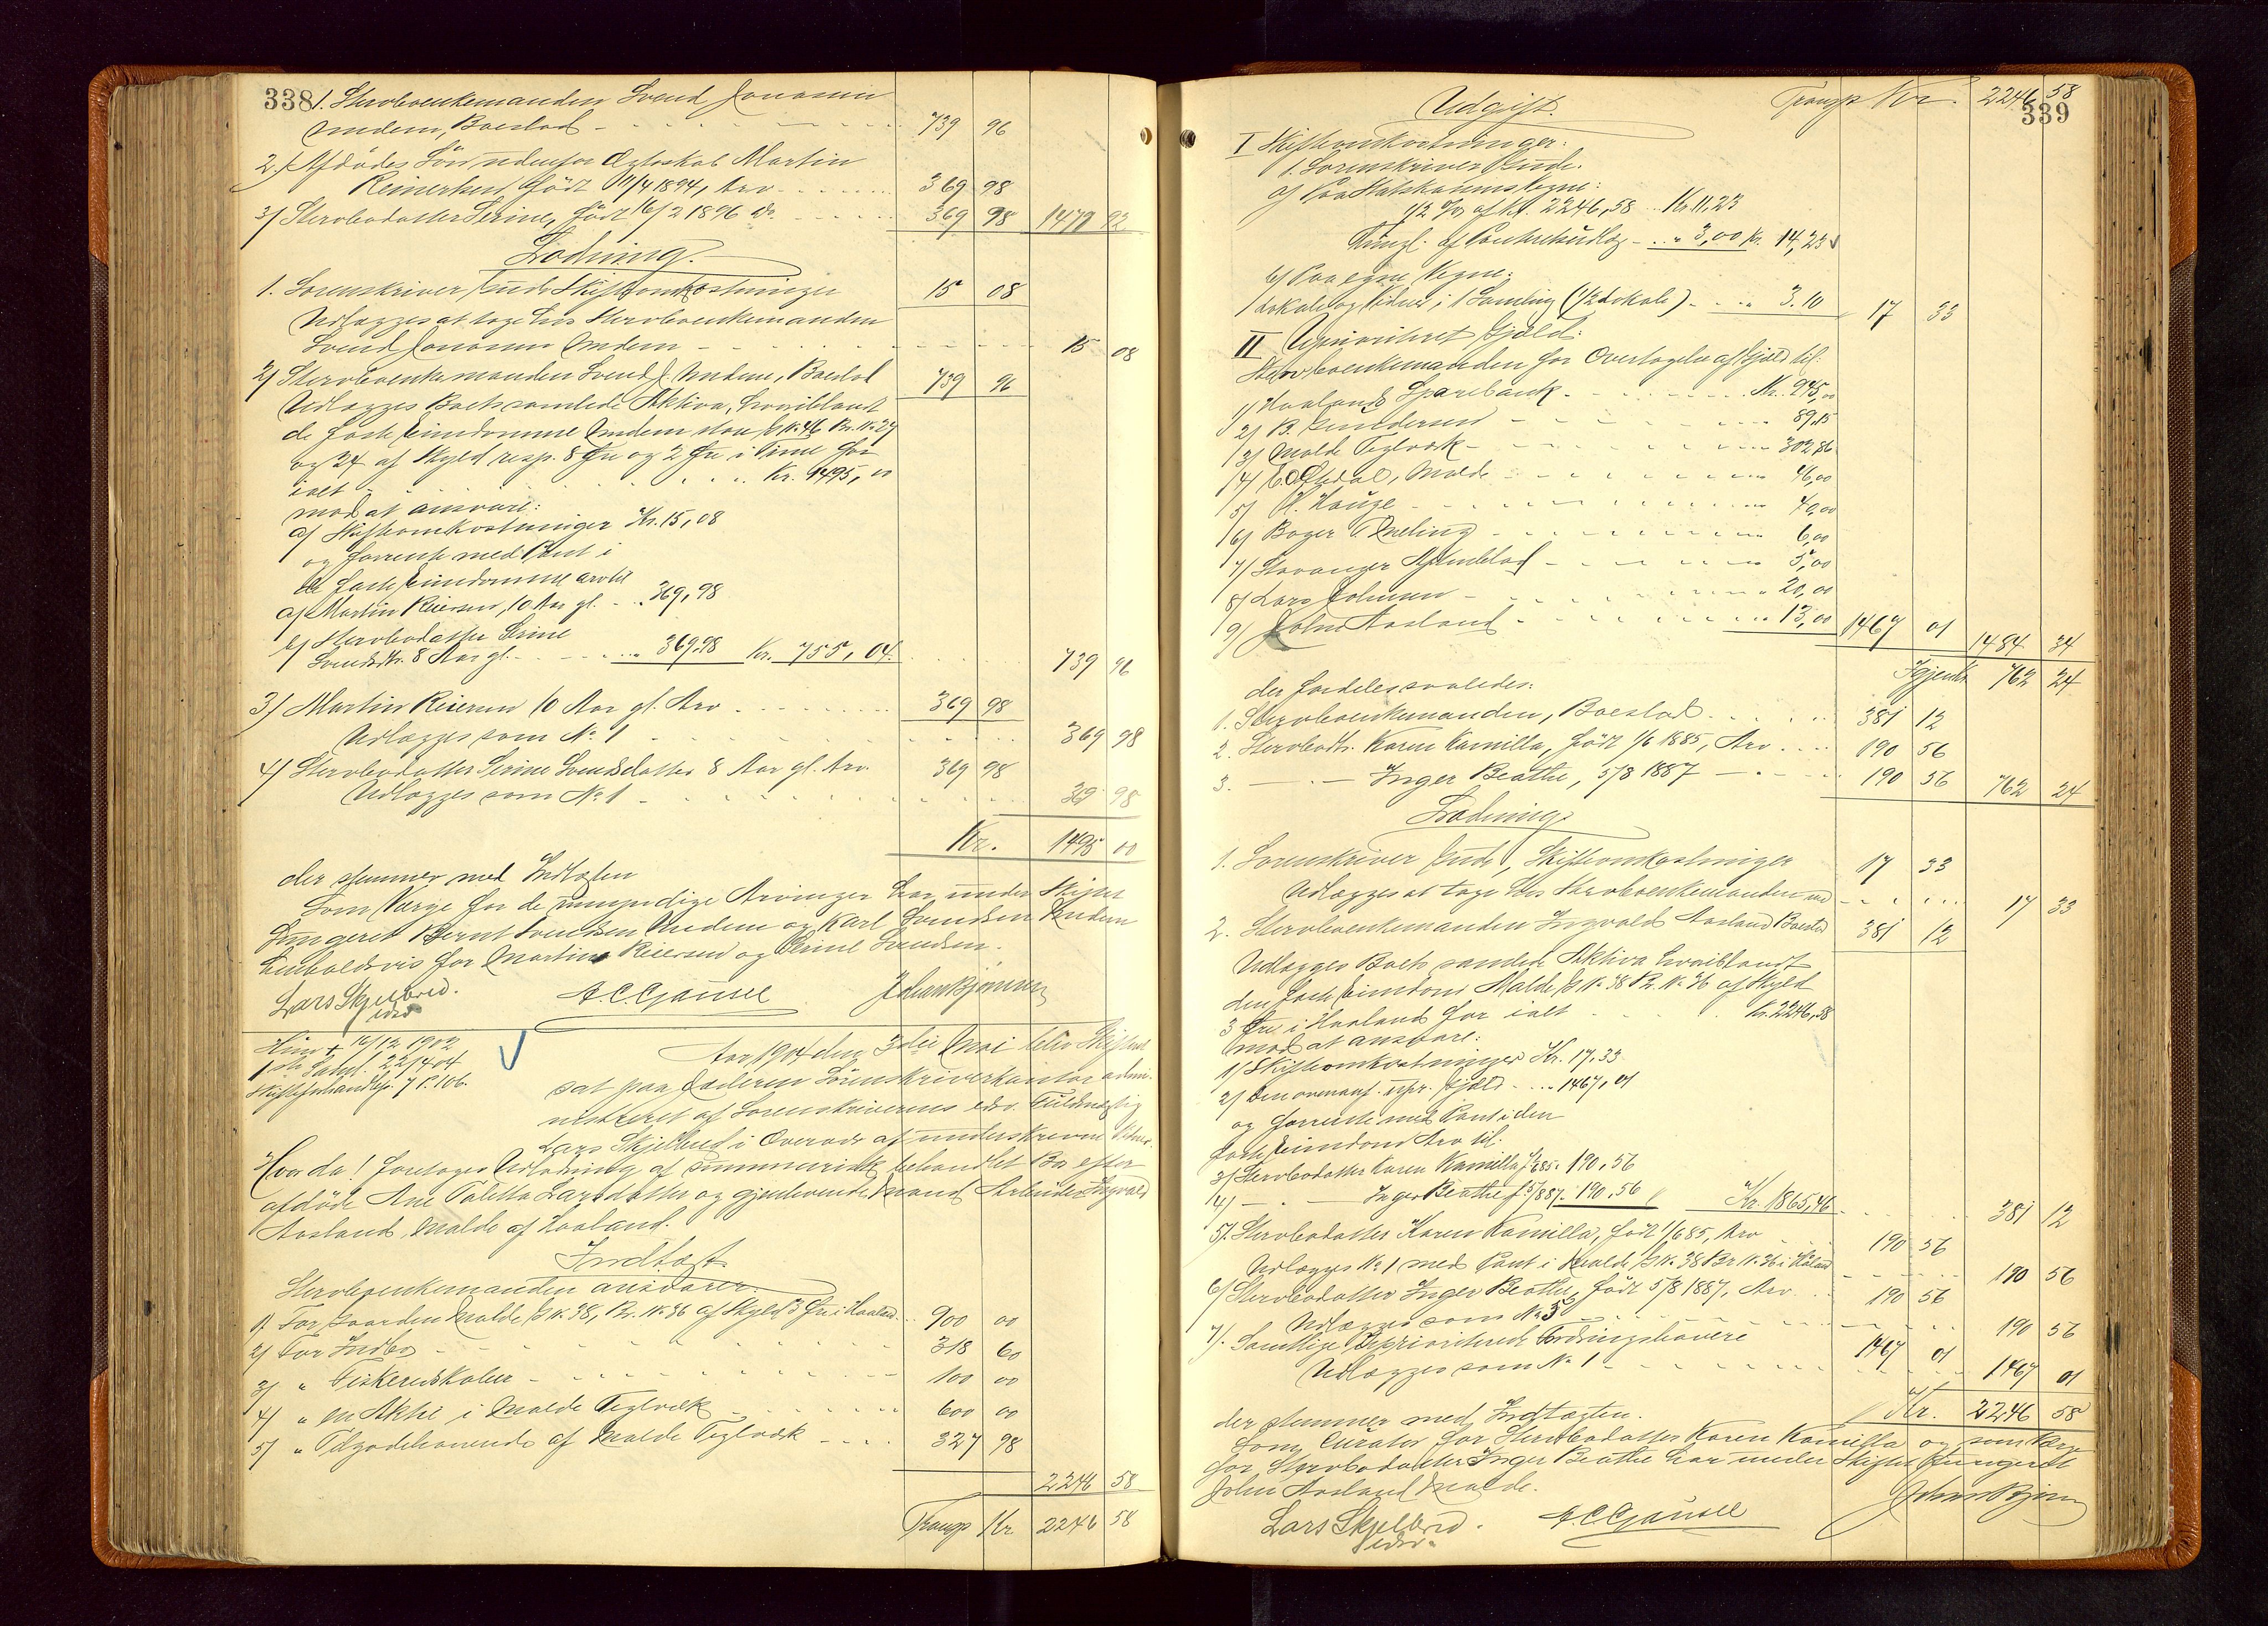 338
1. Sterboenkemanden Svend Jonassen
Undem, Boeslod - 739 96
2. Afdödes Sön udenfor Ægteskab Martin
Reiersen, födt 11/4 1894, Arv 369 98
3) Sterbodatter Serine, födt 16/2 1896 do 369 98 1479 92
Lodning.
1. Sorenskriver Gude Skifteomkostninger 15 08
Udlægges at tage hos Sterboenkemanden
Svend Jonassen Undem - 15 08
2) Sterboenkemanden Svend J. Undem, Boeslod 739 96
Udlægges Boets samlede Aktiva, hvoriblandt
de faste Eiendomme Undem store G.N. 46 Br.N. 27
og 24 af Skyld resp. 8 Øre og 2 Øre i Time for
ialt - Kr. 1495,00
mod at ansvare:
a) Skifteomkostninger Kr. 15,08
og forrente med Pant i
de faste Eiendomme arv til
a) Martin Reiersen, 10 Aar gl. - 369,98
b) Sterbodatter Serine
Svendsdtr. 8 Aar gl. - 369,98 Kr. 755,04. 739 96
3) Martin Reiersen 10 Aar gl. Arv 369 98
Udlægges som No 1 369 98
4) Sterbodatter Serine Svendsdatter 8 Aar gl. Arv. 369 98
Udlægges som No 1 - 369 98
Kr. 1495 00
der stemmer med Indtægten
Som Værge for de umyndige Arvinger har under Skiftet
fungeret Bernt Svendsen Undem og Karl Svendsen Undem
henholdsvis for Martin Reiersen og Serine Svendsen.
Lars Skjelbred. A.C. Gausel Johan Bjønnes
edsv
Hun + 16/12 1902
1ste Saml. 22/4 04
Skiftesforhandlsp. 7 P. 106.
Aar 1904 den 3die Mai blev Skifteret
sat paa Jæderens Sorenskriverkontor admi-
nistreret af Sorenskriverens edsv. Fuldmægtig
Lars Skjelbred i Overvær af underskrevne Vidner.
Hvorda! foretoges Udlodning af summarisk behandlet Bo efter
afdöde Ane Taletta Larsdatter og gjenlevende Mand Arbeider Ingvald
Aasland, Malde af Haaland.
Indtægt.
Sterboenkemanden ansvarer:
1) For Gaarden Malde G.N. 38, Br. N. 36 af Skyld 3 Øre i Haaland. 900 00
2) For Indbo - 318 60
3) " Fiskeredskaber - 100 00
4) " en Aktie i Malde Teglværk 600 00
5) " Tilgodehavende af Malde Teglværk 327 98
2246 58
Transp. Kr 2246 58
339
Udgift. Transp. Kr. 2246 58
I Skifteomkostninger:
1. Sorenskriver Gude.
a) Paa Statskassens Vegne:
1/2 % af Kr. 2246,58 Kr. 11,23
Tingl. af Panteretsudlæg - " 3,00 Kr. 14,23
b) Paa egne Vegne:
Lokale og Vidner i 1 Samling (1/2 Lokale) - " 3.10 17 33
II Uprioriteret Gjæld:
Sterboenkemanden for Overtagelse af Gjæld til:
1) Haaland Sparebank - Kr. 945,00
2) B. Gundersen 89,15
3) Malde Teglværk - 302,86
4) E. Oftedal, Malde 46,00
5) H. Hauge 40,00
6) Boger Meling 6,00
7) Stavanger Aftenblad - 5,00
8) Lars Johnsen - 20,00
9) John Aasland - 13,00 1467 01 1484 34
Igjen Kr. 762 24
der fordeles saaledes:
1. Sterboenkemanden, Boeslod 381 12
2. Sterbodtr. Karen Kamilla, födt 1/6 1885, Arv 190 56
3. - - Inger Beathe, 5/8 1887 - 190 56 762 24
Lodning.
1. Sorenskriver Gude, Skifteomkostninger 17 33
Udlægges at tage hos Sterboenkemanden ved 17 33
2. Sterboenkemanden Ingvald Aasland Boeslod 381 12
Udlægges Boets samlede Aktiva hvoriblandt
den faste Eiendom Malde, G.N. 38 Br. N. 36 af Skyld
3 Øre i Haaland for ialt Kr. 2246,58
mod at ansvare:
1) Skifteomkostninger Kr. 17.33
2) Den ovennævn. upr. Gjæld - " 1467,01
og forrente med Pant i den
faste Eiendom Arv til:
3) Sterbodatter Karen Kamilla f. 1/6 85. 190,56
4) - - Inger Beathe f. 5/8 87. 190,56 Kr. 1865,46 381 12
5). Sterbodatter Karen Kamilla, födt 1/6 85, Arv 190 56
Udlægges No 1 med Pant i Malde G.N. 38 Br N. 36 i Håland 190 56
6) Sterbodatter Inger Beathe, födt 5/8 1887, Arv. 190 56
Udlægges som No 5 190 56
7). Samtlige Uprioriterede Fordringshavere 1467 01
Udlægges som No 1 - 1467 01
Kr. 2246 58
der stemmer med Indtægten.
Som Curator for Sterbodatter Karen Kamilla og som Værge
for Sterbodatter Inger Beathe har under Skiftet fungeret
John Aasland Malde.
Lars Skjelbred. A.C. Gausel Johan Bjønnes
edsv.